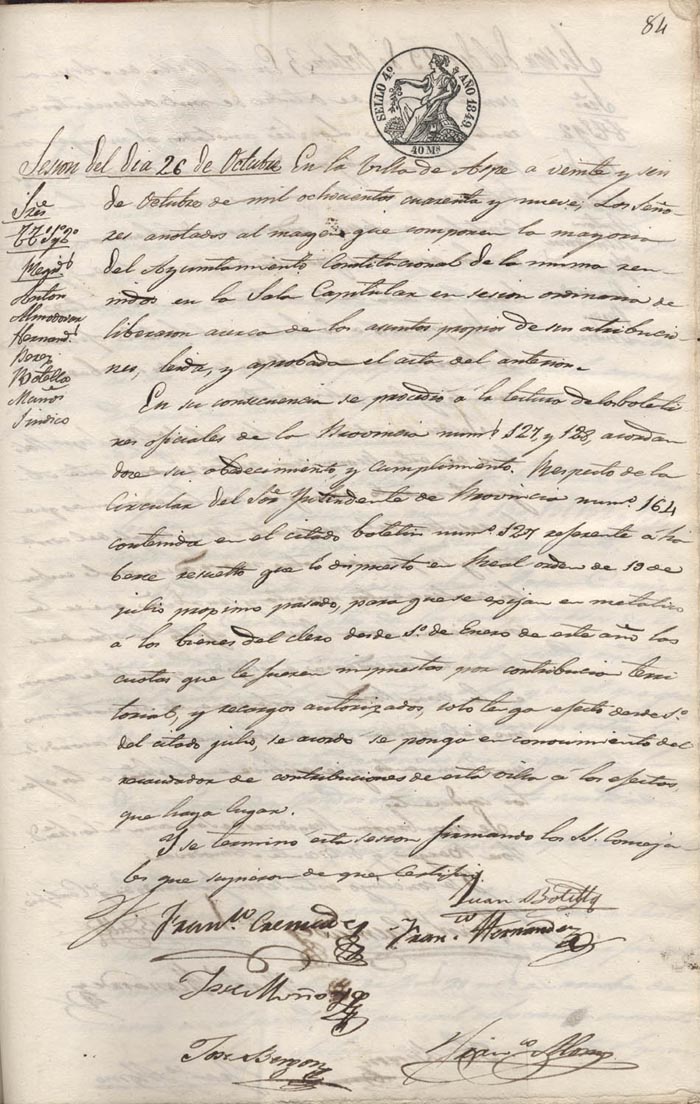 84
SELLO 4º AÑO 1849.
40 Ms
Sesion del dia 26 de Octubre En la Villa de Aspe á veinte y seis
de Octubre de mil ochocientos cuarenta y nueve; Los Seño-
res anotados al margen que componen la mayoria
del Ayuntamiento Constitucional de la misma reu-
nidos en la Sala Capitular en sesion ordinaria de
liberaron acerca de los asuntos propios de sus atribucio-
nes, leida, y aprobada el acta del anterior.
Sres
Regid.s
Anton
Almodovar
Hernand.z
Perez
Botella
Muños
Sindico
En su consecuencia se procedio á la lectura de los boleti
nes oficiales de la Provincia num.s 127, y 128, acordan
dose su obedecimiento, y cumplimiento. Respecto de la
Circular del Sor Yntendente de Provincia num.º 164
contenida en el citado boletin num.º 127 referente á ha
berse resuelto que lo dispuesto en Real orden de 19 de
julio proximo pasado, para que se exijan en metalico
á los bienes del clero desde 1.º de Enero de este año las
cuotas que le fueren impuestas por contribucion terri
torial, y recargos autorizados, solo tenga efecto desde 1.º
del citado julio, se acordo se ponga en conocimiento del
recaudador de contribuciones de esta villa á los efectos
que haya lugar.
Y se termino esta sesion firmando los SS. Conceja-
les que supieron de que Certifico
Juan Botella
Fran.co Cremades
Fran.co Hernandez
Jose Muños